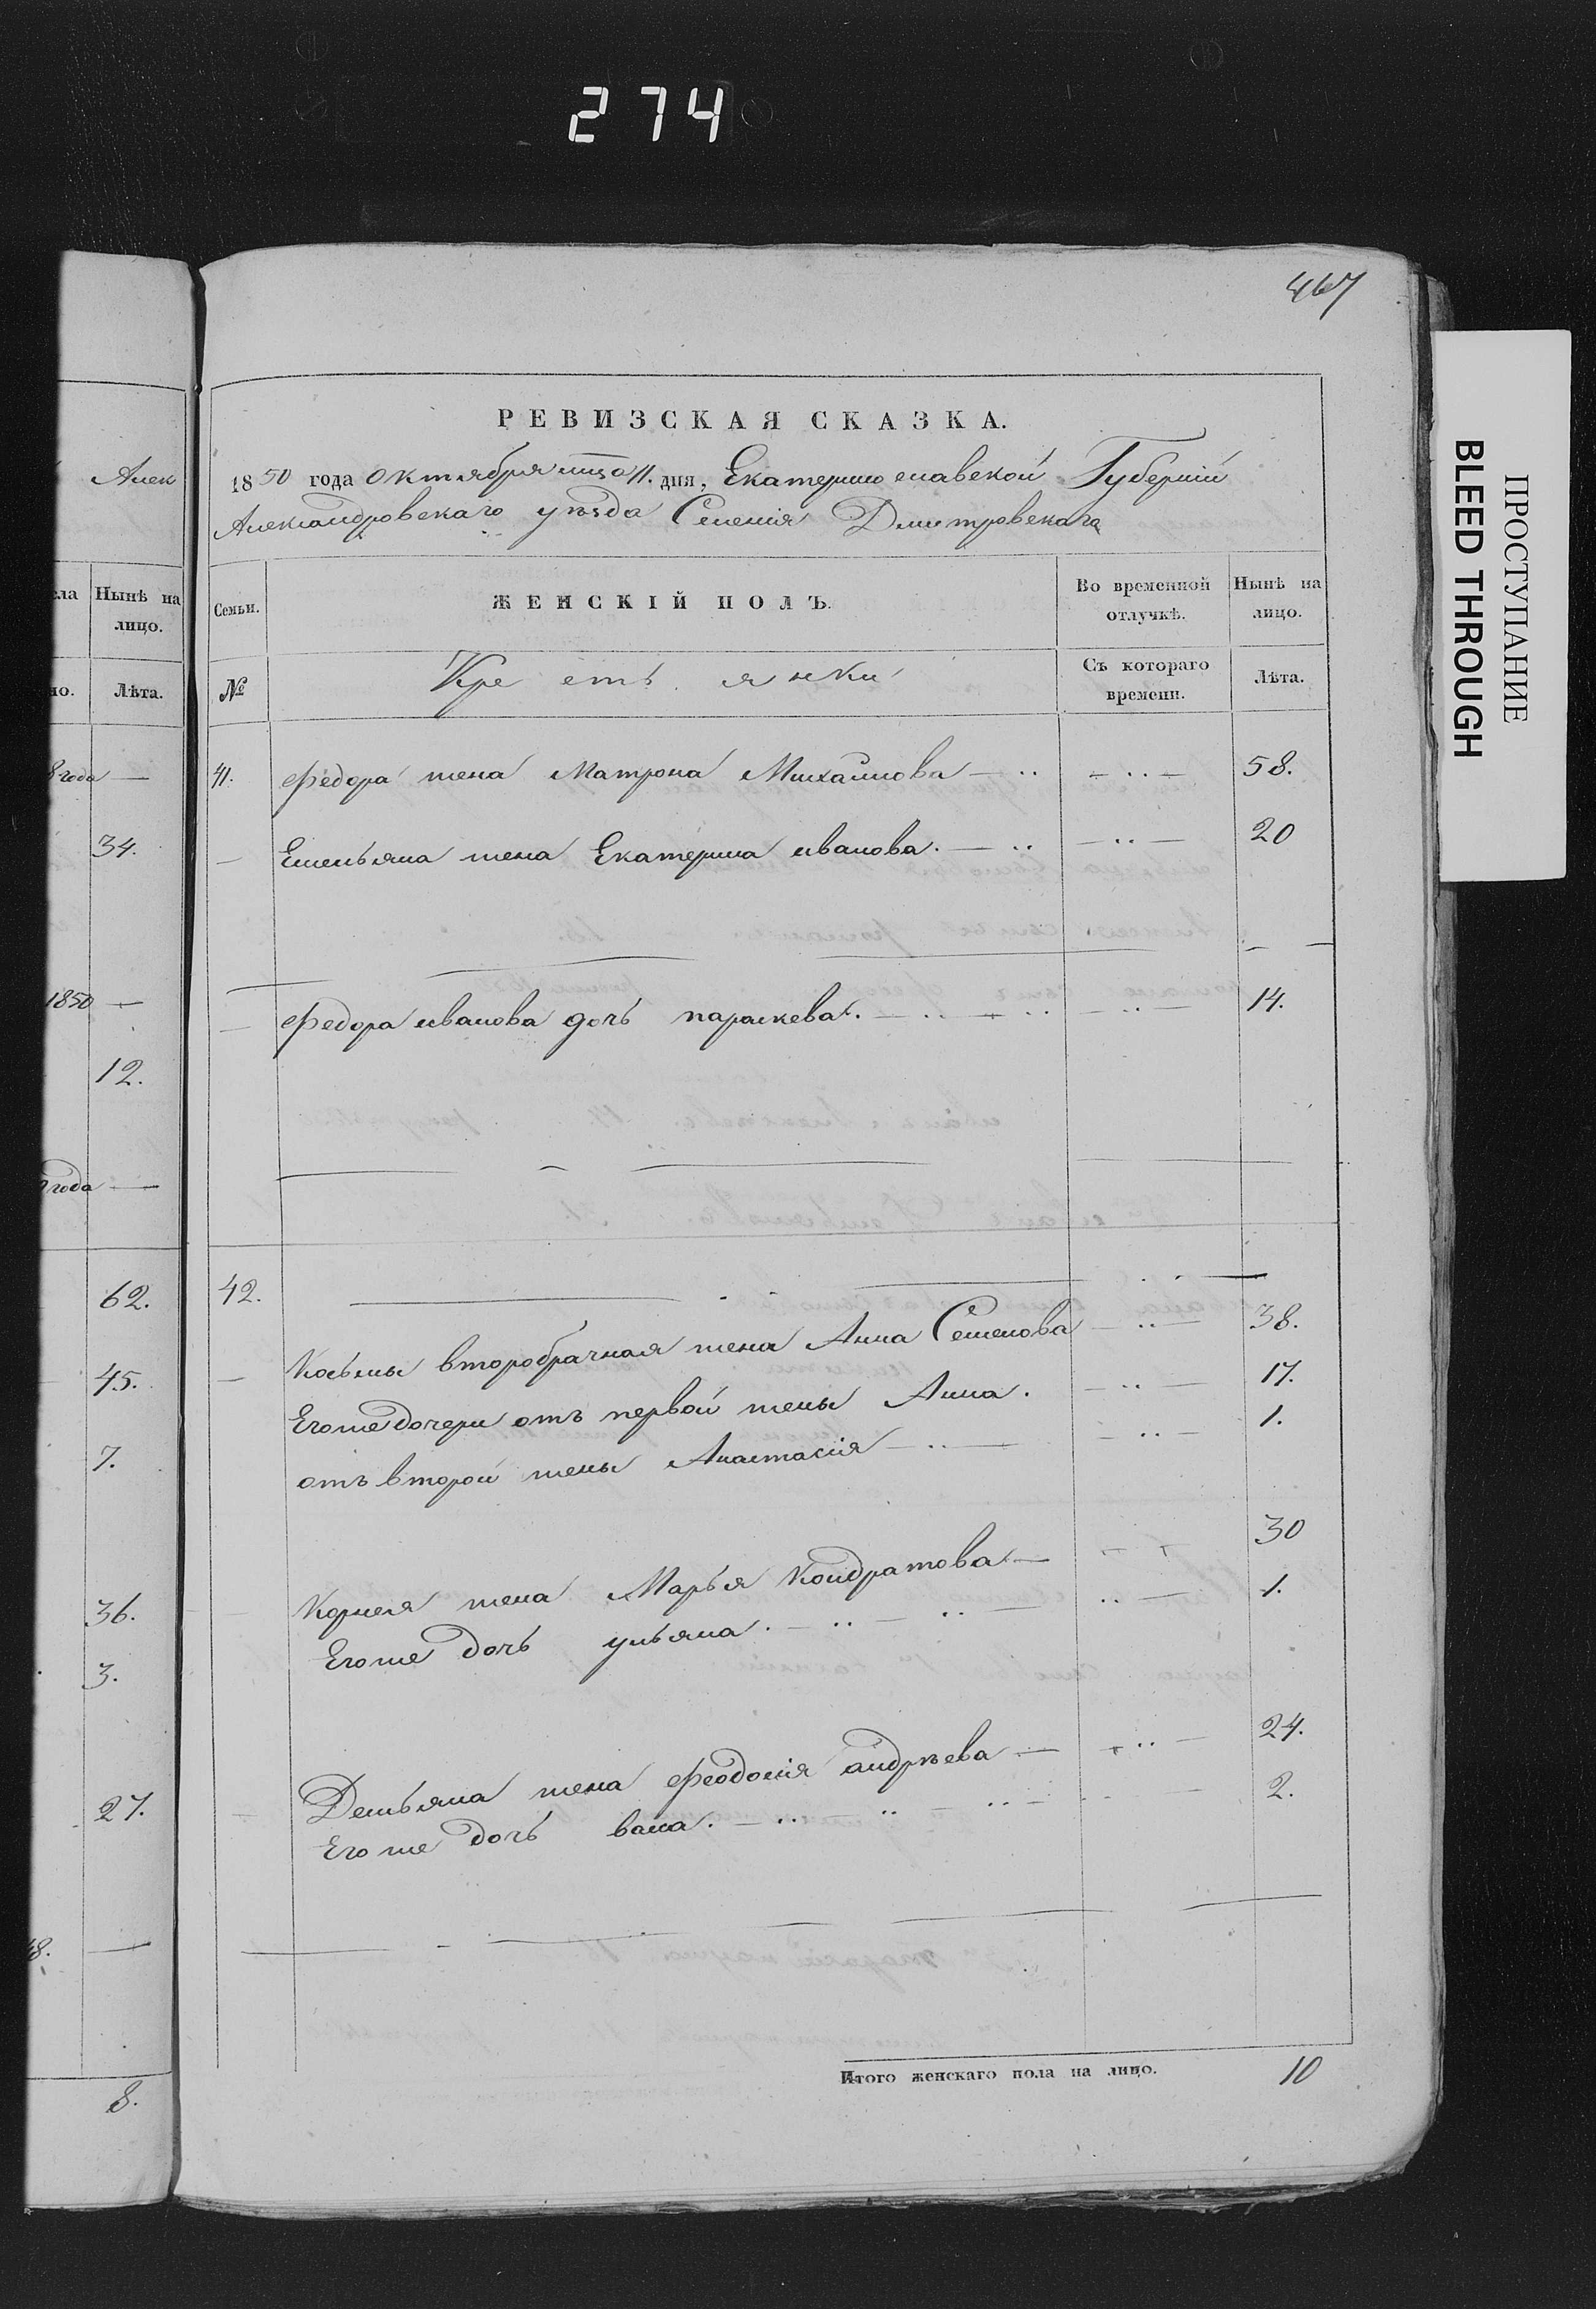 274
467
РЕВИЗСКАЯ СКАЗКА.
1850 года октября мѣца 11. дня, Екатеринославской Губерніи
Александровскаго уѣзда Селенія Дмитровскаго
Семьи.
ЖЕНСКІЙ ПОЛЪ.
Во временной отлучкѣ.
Нынѣ на лицо.
№
Кресть янки
Съ котораго времени.
Лѣта.
41. Федора жена Матрона Михайлова — 58.
— Емельяна жена Екатерина иванова. — 20
— Федора иванова дочь параскева. — 14.
42.
— Косьмы второбрачная жена Анна Семенова — 38.
Егоже дочери отъ первой жены Анна. — 17.
отъ второй жены Анастасія — 1.
Корнея жена Марья Кондратова — 30
Егоже дочь ульяна. — 1.
Демьяна жена Феодосія андрѣева — 24.
Егоже дочь васа. — 2.
Итого женскаго пола на лицо. 10
Алек
ела
Нынѣ на лицо.
но.
Лѣта.
8 года —
34.
1850 —
12.
года —
62.
45.
7.
36.
3.
27.
48. —
8.
ПРОСТУПАНИЕ
BLEED THROUGH